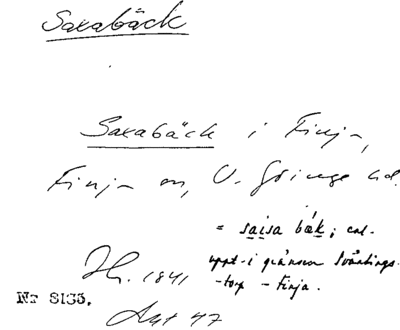 Saxabäck
Saxabäck i Finja,
Finja sn, V. Göinge hd.
= saisa bæk; enl.
uppt. i gränsen Svänings-
-torp - Finja.
Jh. 1841
Nr 8135.
Ant 47